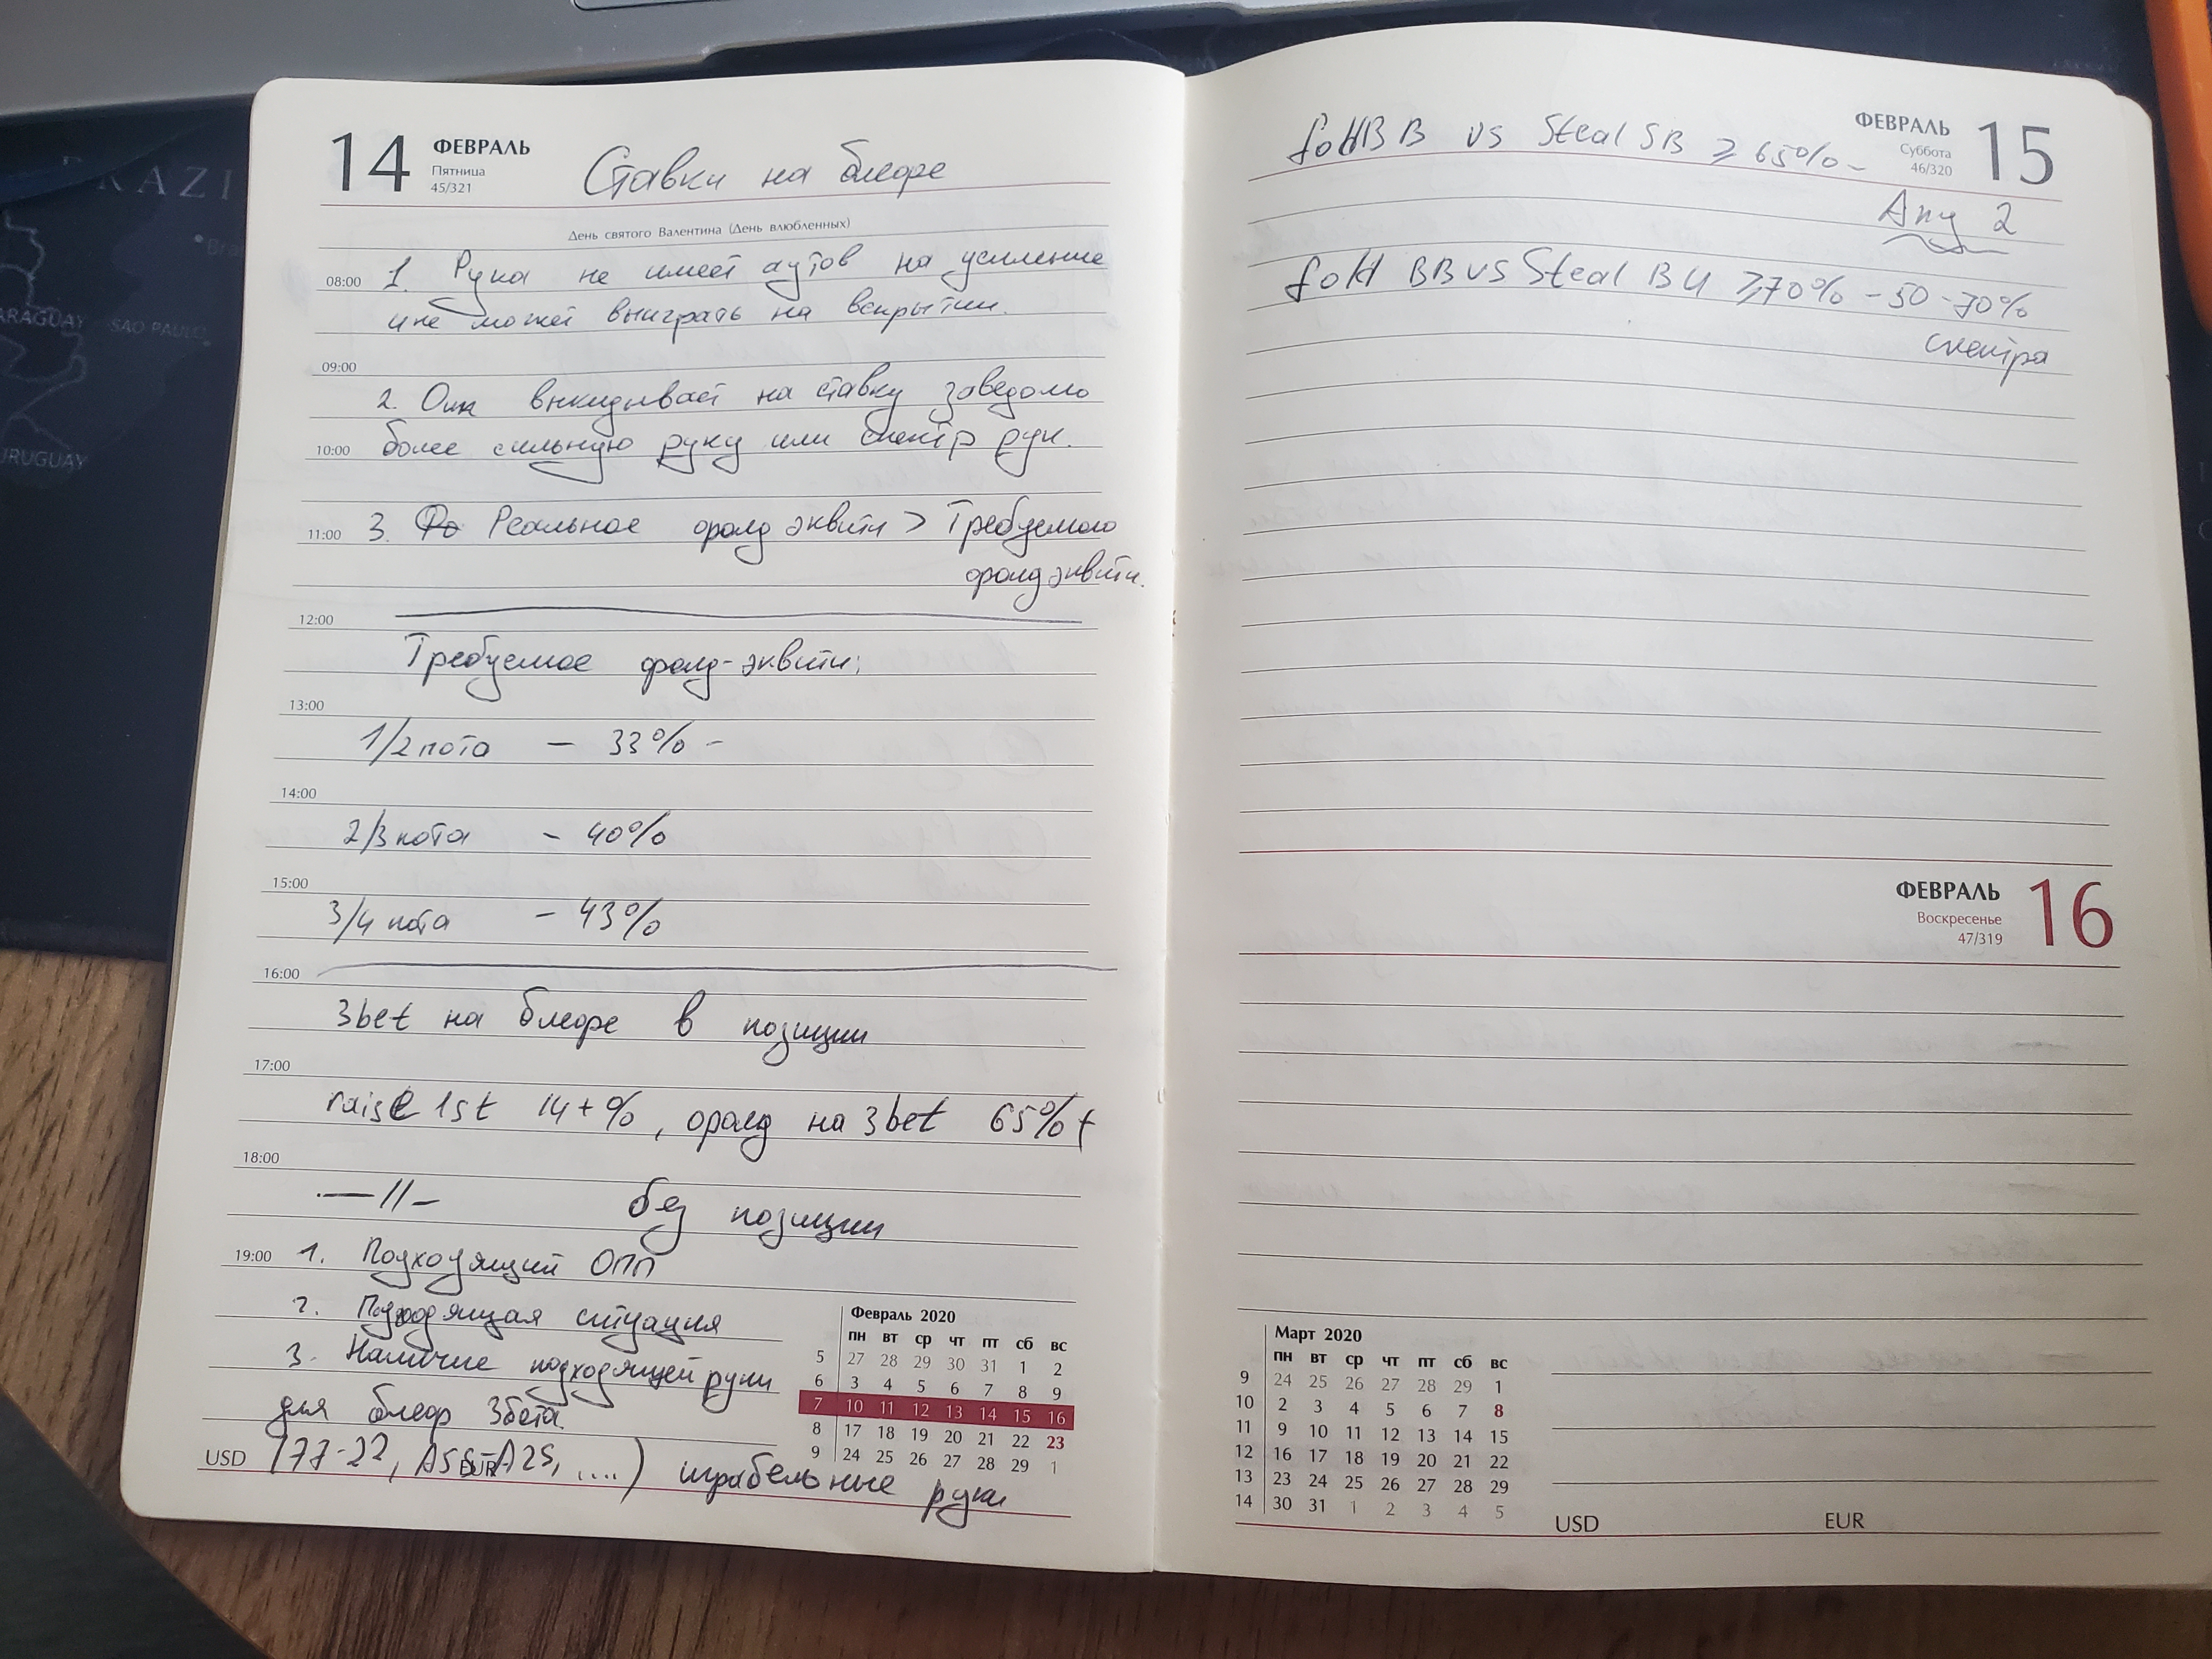 14 ФЕВРАЛЬ
Пятница
45/321
Ставки на блефе
День святого Валентина (День влюбленных)
08:00 1. Рука не имеет аутов на усиление
и не может выиграть на вскрытии.
09:00
2. Опп выкидывает на ставку заведомо
10:00 более сильную руку или спектр рук.
11:00 3. Реальное фолд эквити > Требуемого
фолд эквити.
12:00
Требуемое фолд-эквити:
13:00
1/2 пота — 33% -
14:00
2/3 пота - 40%
15:00
3/4 пота - 43%
16:00
3bet на блефе в позиции
17:00
raise 1st 14+%, фолд на 3bet 65%+
18:00
—//— без позиции
19:00 1. Подходящий ОПП
2. Подходящая ситуация
3. Наличие подходящей руки
для блеф 3бета.
USD (77-22, A5s-A2s, ....) играбельные руки
EUR
Февраль 2020
пн вт ср чт пт сб вс
5 27 28 29 30 31 1 2
6 3 4 5 6 7 8 9
7 10 11 12 13 14 15 16
8 17 18 19 20 21 22 23
9 24 25 26 27 28 29 1
ФЕВРАЛЬ 15
Суббота
46/320
fold BB vs Steal SB ⩾ 65% -
Any 2
fold BB vs Steal BU ⩾70% - 50-70%
спектра
ФЕВРАЛЬ 16
Воскресенье
47/319
Март 2020
пн вт ср чт пт сб вс
9 24 25 26 27 28 29 1
10 2 3 4 5 6 7 8
11 9 10 11 12 13 14 15
12 16 17 18 19 20 21 22
13 23 24 25 26 27 28 29
14 30 31 1 2 3 4 5
USD EUR
SAO PAULO
URUGUAY